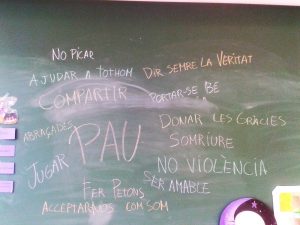 NO PICAR
AJUDAR A TOTHOM
DIR SEMRE LA VERITAT
COMPARTIR
PORTAR-SE BE
ABRAÇADES
PAU
DONAR LES GRÀCIES
SOMRIURE
JUGAR
NO VIOLÈNCIA
FER PETONS
SER AMABLE
ACCEPTAR-NOS COM SOM